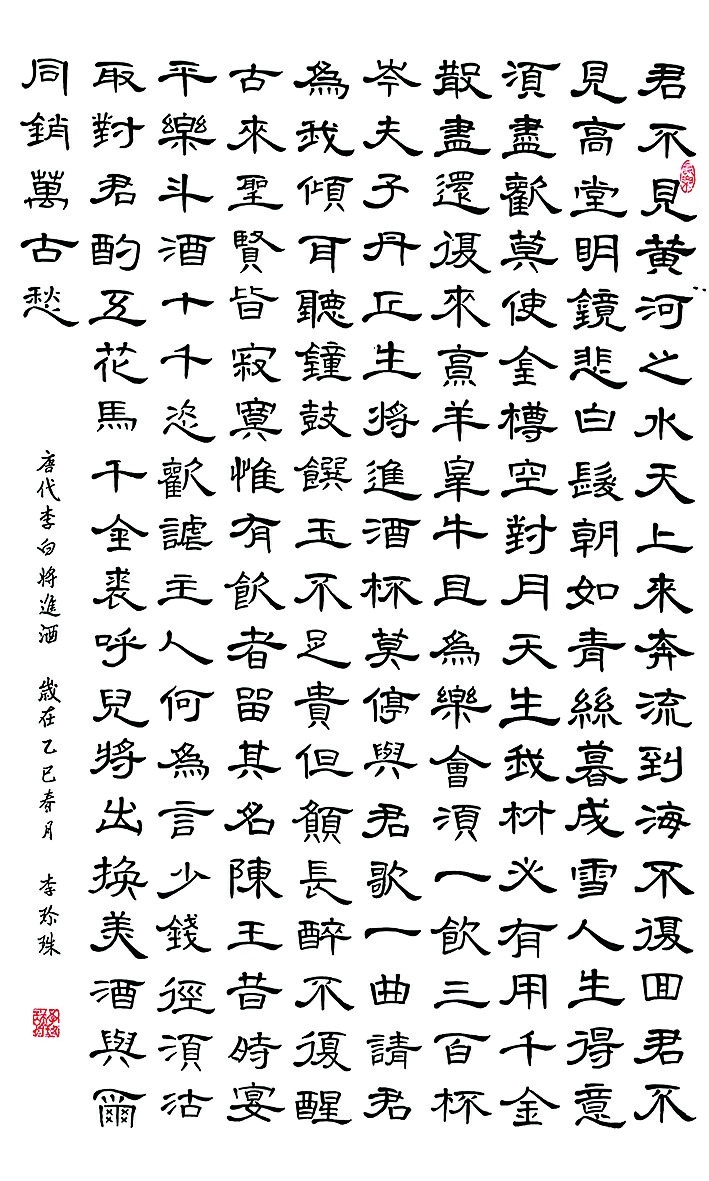 君不見黃河之水天上來奔流到海不復回君不
見高堂明鏡悲白髮朝如青絲暮成雪人生得意
須盡歡莫使金樽空對月天生我材必有用千金
散盡還復來烹羊宰牛且為樂會須一飲三百杯
岑夫子丹丘生將進酒杯莫停與君歌一曲請君
為我傾耳聽鐘鼓饌玉不足貴但願長醉不復醒
古來聖賢皆寂寞惟有飲者留其名陳王昔時宴
平樂斗酒十千恣歡謔主人何為言少錢徑須沽
取對君酌五花馬千金裘呼兒將出換美酒與爾
同銷萬古愁
唐代李白將進酒 歲在乙巳春月 李珍珠